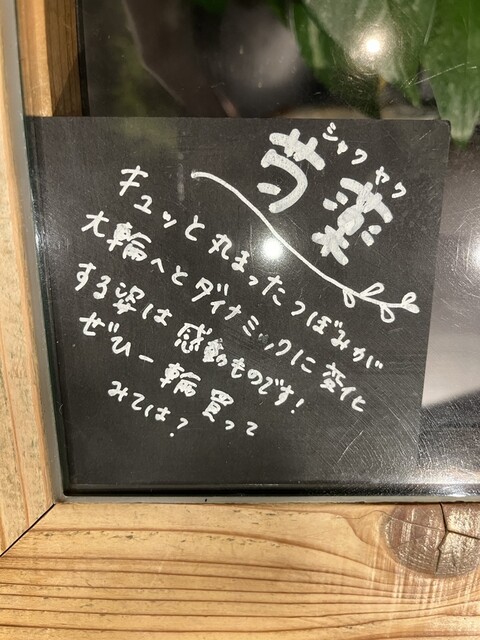 シャク ヤク
芍薬
キュッと丸まったつぼみが
大輪へとダイナミックに変化
する姿は感動ものです!
ぜひ一輪買って
みては?